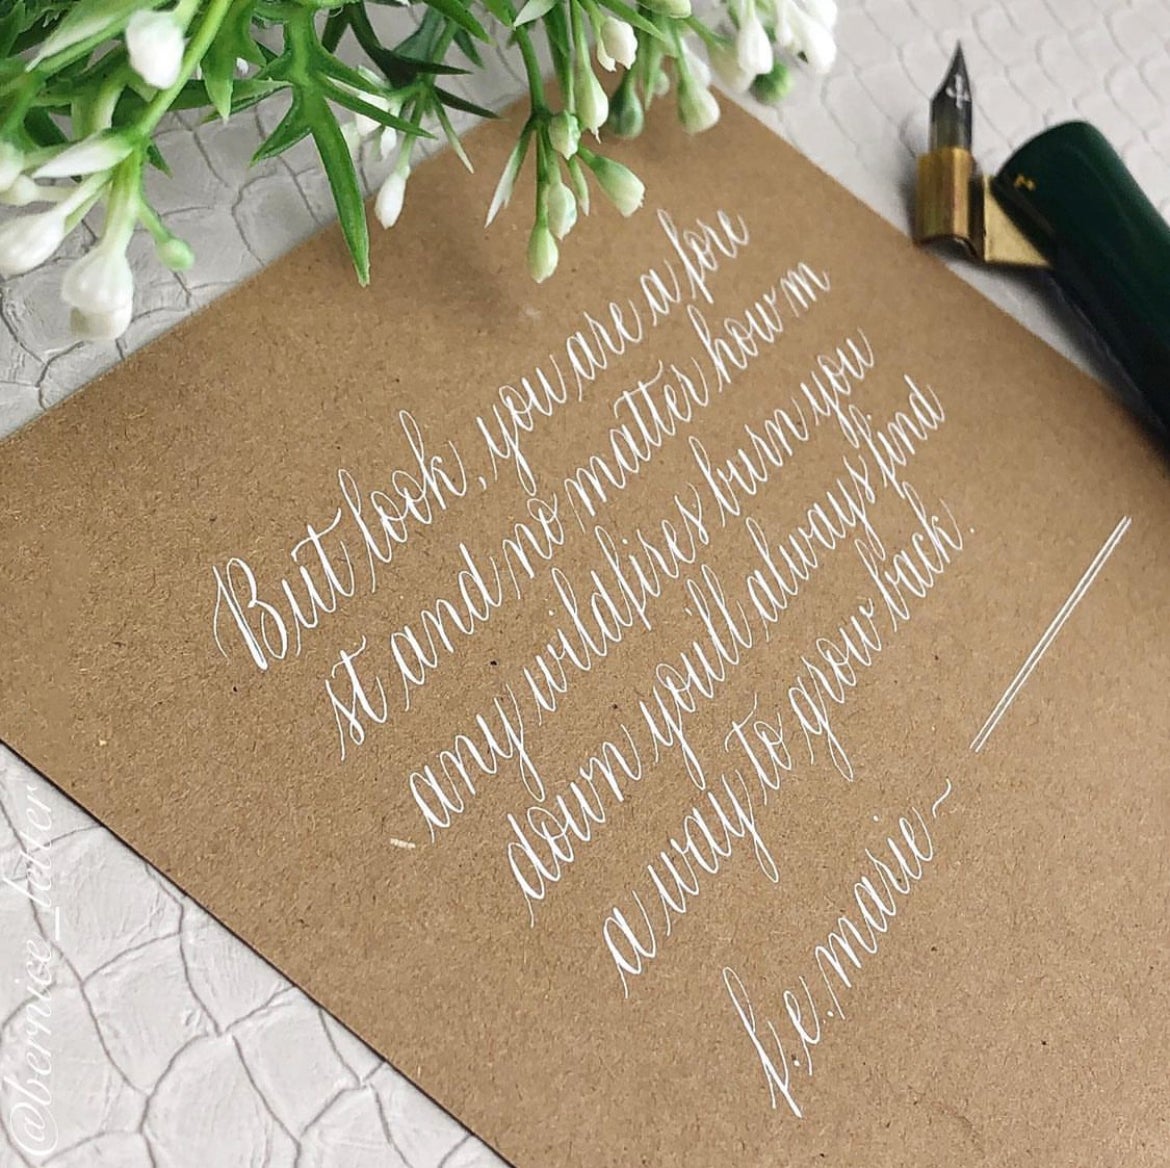 But look, you are a fore
st and no matter how m
any wildfires burn you
down you'll always find
a way to grow back.
f.e. marie ~
@bernice_letter